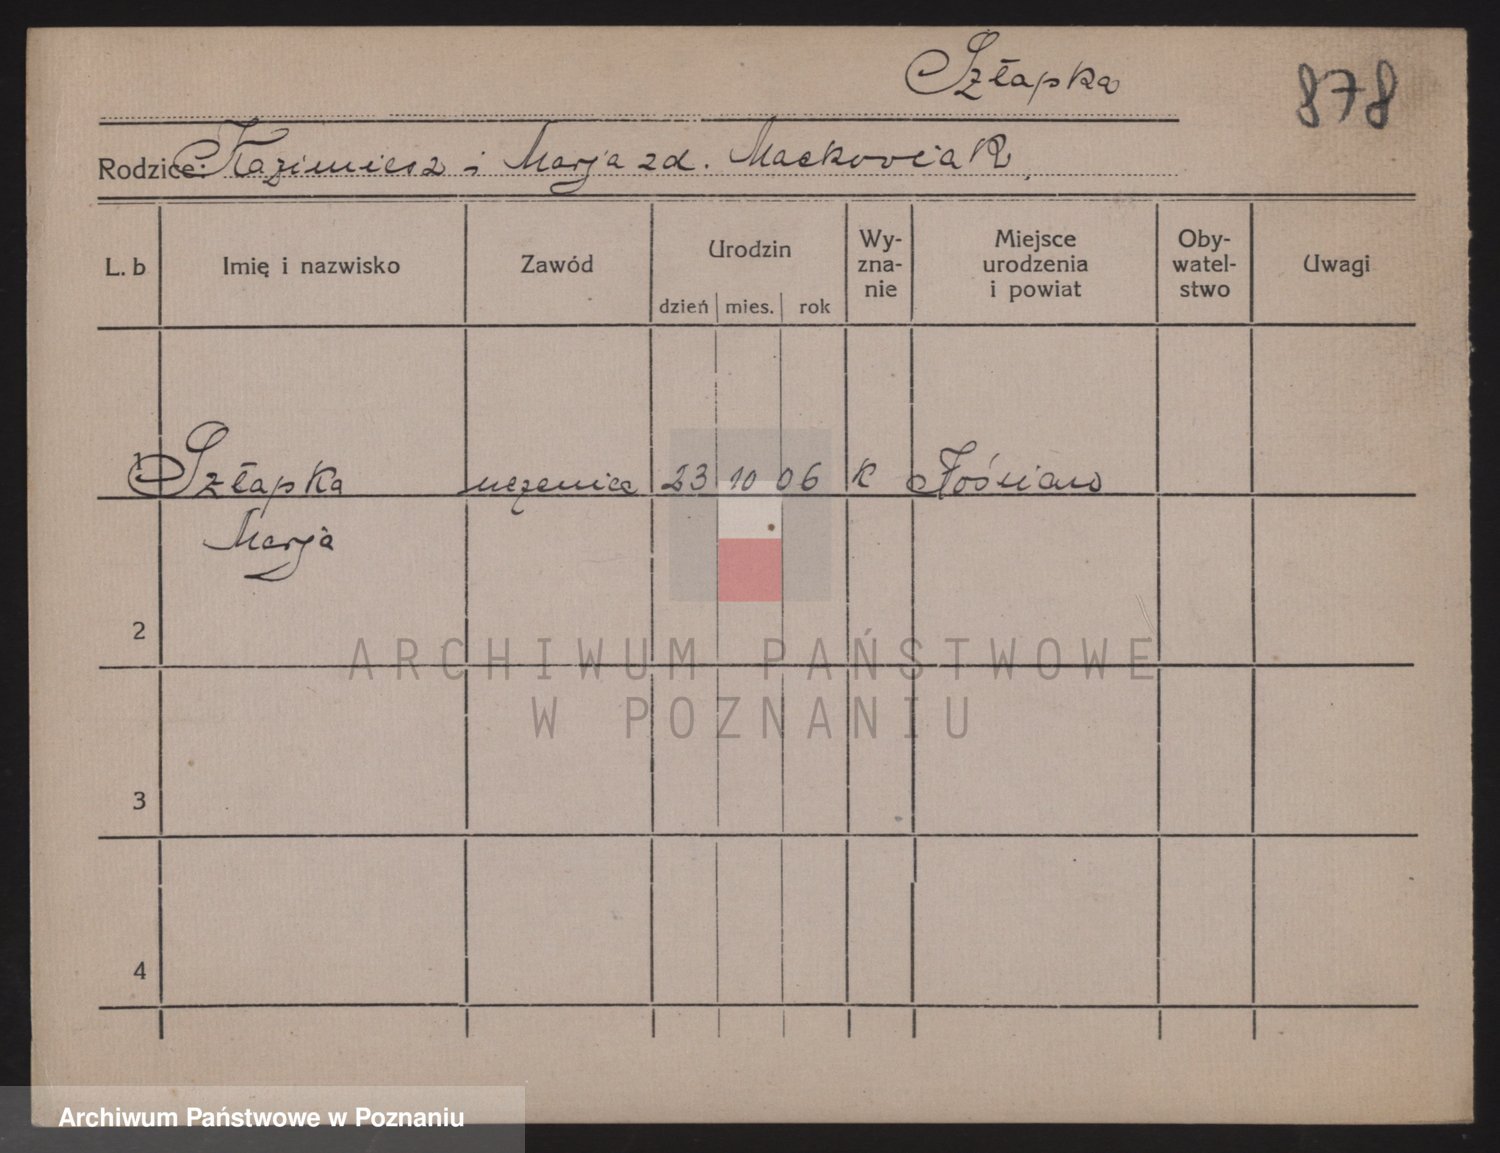 Szłapka
878
Rodzice: Kazimierz i Marja zd. Maćkowiak
L. b
Imię i nazwisko
Zawód
Urodzin
dzień
mies.
rok
Wy-
zna-
nie
Miejsce
urodzenia
i powiat
Oby-
watel-
stwo
Uwagi
1
Szłapka
uczenica
23
10
06
K
Marja
2
3
4
ARCHIWUM PAŃSTWOWE
W POZNANIU
Archiwum Państwowe w Poznaniu